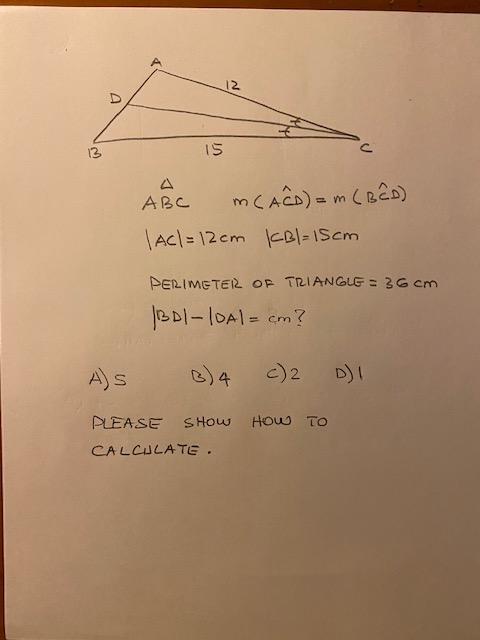 A
12
D
B
15
C
Δ
ABC m(AĈD) = m(BĈD)
|AC| = 12cm |CB| = 15cm
PERIMETER OF TRIANGLE = 36 cm
|BD| - |DA| = cm?
A) 5 B) 4 C) 2 D) 1
PLEASE SHOW HOW TO
CALCULATE.